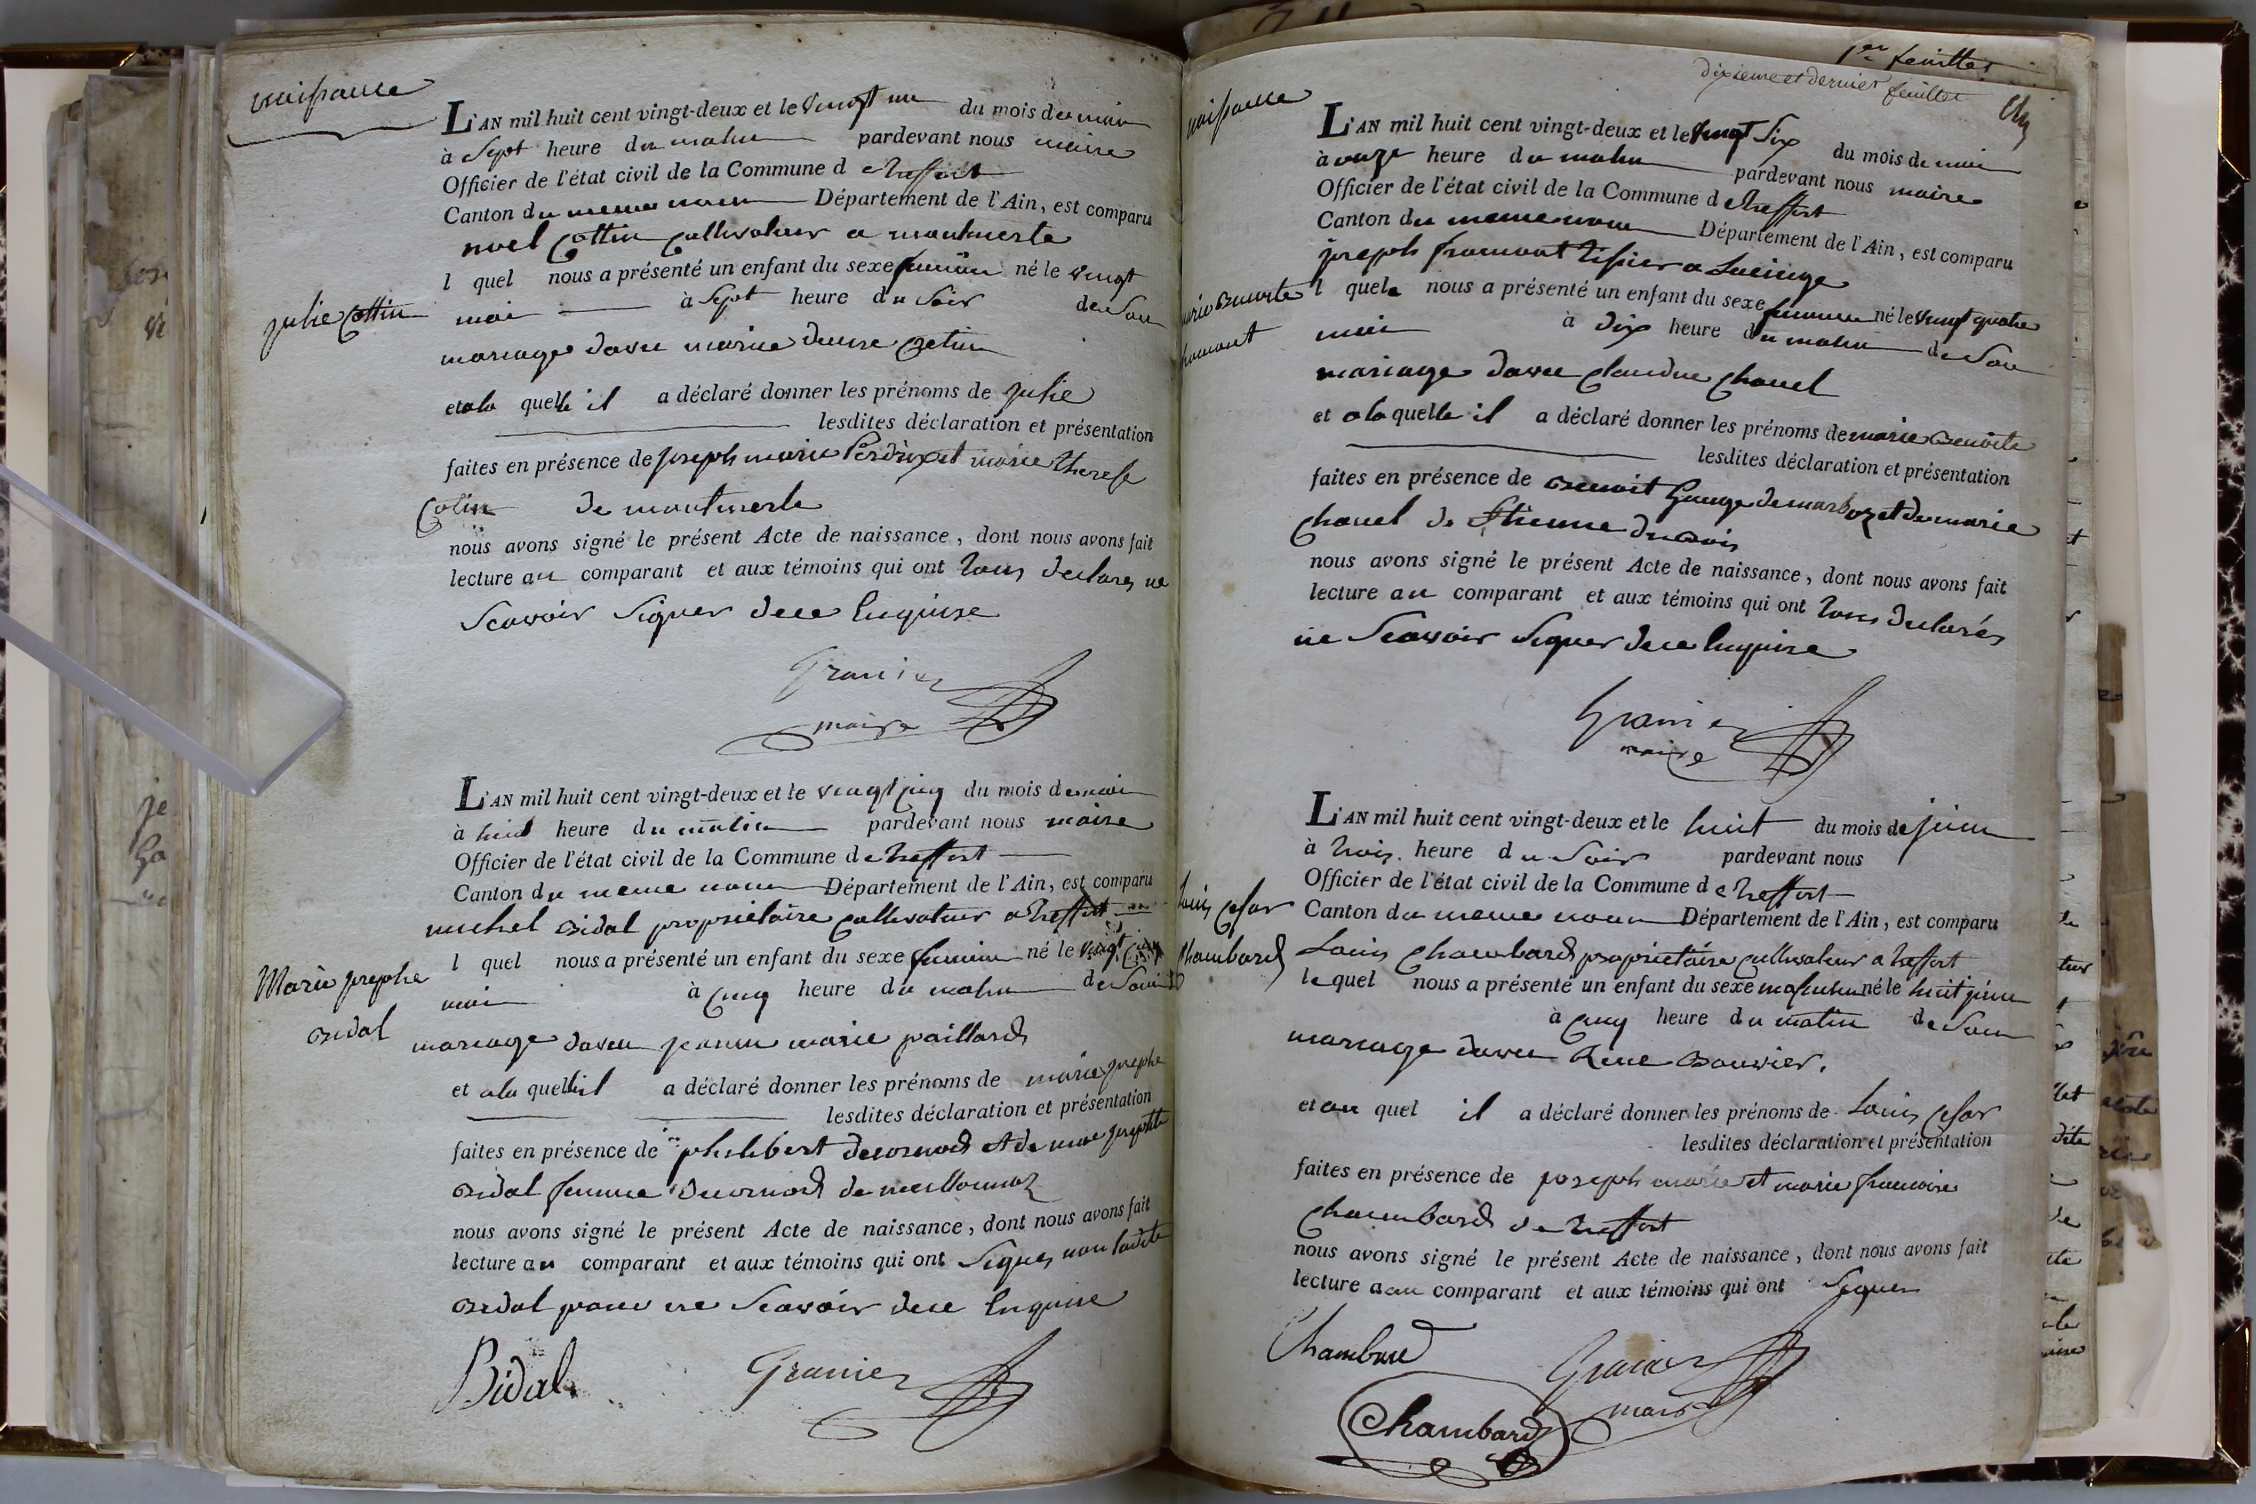 naissance
L'AN mil huit cent vingt-deux et le vingt un du mois de mai
à sept heure du matin pardevant nous maire
Officier de l'état civil de la Commune de treffort
Canton du meme nom Département de l'Ain, est comparu
noel Cottin cultivateur a montmerle
l quel nous a présenté un enfant du sexe feminin né le vingt
julie Cottin
mai à sept heure du soir de son
mariage davec marie denise
et a la quelle il a déclaré donner les prénoms de julie
lesdites déclaration et présentation
faites en présence de joseph marie Perdrix et marie therese
Colin de montmerle
nous avons signé le présent Acte de naissance, dont nous avons fait
lecture au comparant et aux témoins qui ont tous declarés ne
scavoir signer de ce enquise
Granier
maire
L'AN mil huit cent vingt-deux et le vingt cinq du mois de mai
à huit heure du matin pardevant nous maire
Officier de l'état civil de la Commune de treffort
Canton du meme nom Département de l'Ain, est comparu
michel Bidal proprietaire cultivateur a treffort
l quel nous a présenté un enfant du sexe feminin né le vingt cinq
Marie josephe
Bidal
mai à cinq heure du matin de son
mariage davec jeanne marie paillard
et a la quelle il a déclaré donner les prénoms de marie josephe
lesdites déclaration et présentation
faites en présence de philibert et de marie josephte
Bidal femme de meillonnaz
nous avons signé le présent Acte de naissance, dont nous avons fait
lecture au comparant et aux témoins qui ont signés non ladite
Bidal pour ne scavoir de ce enquise
Bidal Granier
1er feuillet
dixieme et dernier feuillet
naissance
L'AN mil huit cent vingt-deux et le vingt six du mois de mai
à onze heure du matin pardevant nous maire
Officier de l'état civil de la Commune de treffort
Canton du meme nom Département de l'Ain, est comparu
joseph fromont tissier a Lucinge
l quel nous a présenté un enfant du sexe feminin né le vingt quatre
marie Benoite
fromont
mai à dix heure du matin de son
mariage davec Claudine Chanel
et a la quelle il a déclaré donner les prénoms de marie Benoite
lesdites déclaration et présentation
faites en présence de Benoit de marboz et de marie
Chanel de St etienne du Bois
nous avons signé le présent Acte de naissance, dont nous avons fait
lecture au comparant et aux témoins qui ont tous declarés
ne scavoir signer de ce enquise
Granier
maire
L'AN mil huit cent vingt-deux et le huit du mois de juin
à trois heure du soir pardevant nous
Officier de l'état civil de la Commune de treffort
Louis Cesar
Chambard
Canton du meme nom Département de l'Ain, est comparu
Louis Chambard proprietaire cultivateur a treffort
le quel nous a présenté un enfant du sexe masculin né le huit juin
à cinq heure du matin de son
mariage davec Reine Bouvier.
et au quel il a déclaré donner les prénoms de Louis Cesar
lesdites déclaration et présentation
faites en présence de joseph marie et marie francoise
Chambard de treffort
nous avons signé le présent Acte de naissance, dont nous avons fait
lecture au comparant et aux témoins qui ont signés
Chambard Granier
maire
Chambard